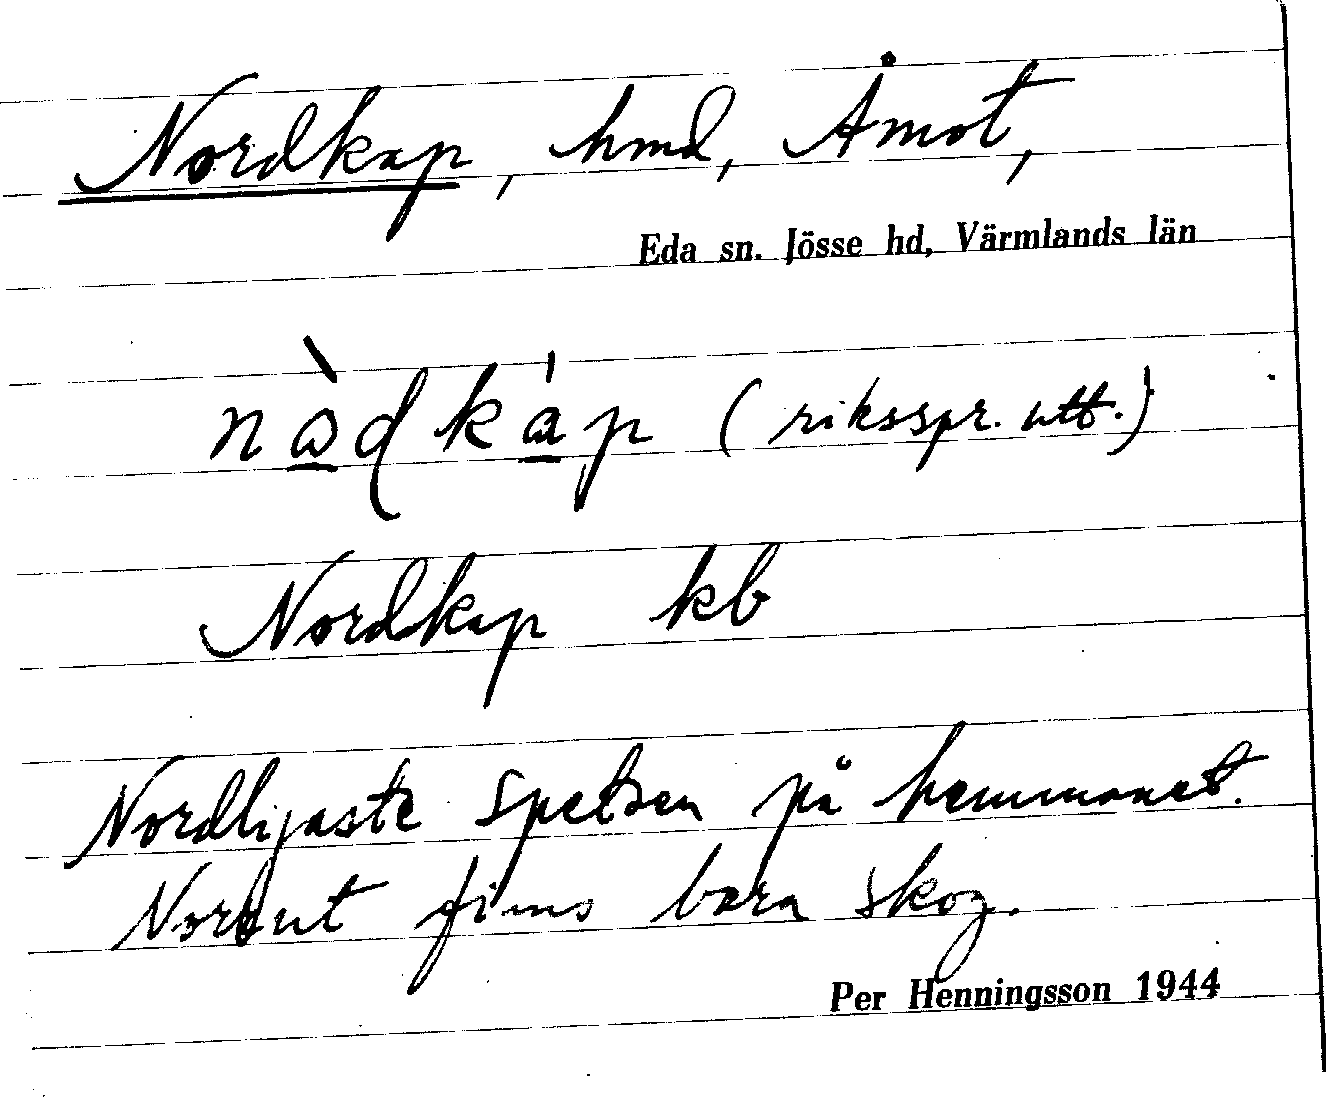 Nordkap, hmd, Åmot,
Eda sn. Jösse hd, Värmlands län
(riksspr. utt.)
Nordkap kb
Nordligaste spetsen på hemmanet.
Norrut finns bara skog.
Per Henningsson 1944